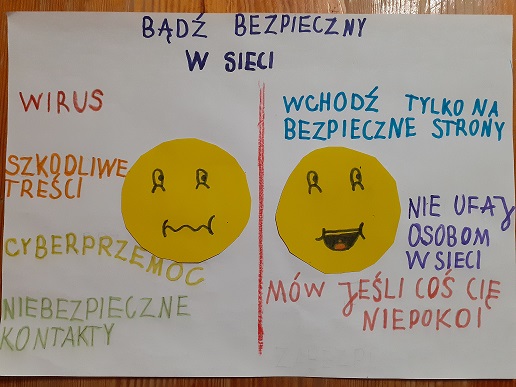 BĄDŹ BEZPIECZNY
W SIECI
WIRUS
SZKODLIWE
TREŚCI
CYBERPRZEMOC
NIEBEZPIECZNE
KONTAKTY
WCHODŹ TYLKO NA
BEZPIECZNE STRONY
NIE UFAJ
OSOBOM
W SIECI
MÓW JEŚLI COŚ CIĘ
NIEPOKOI